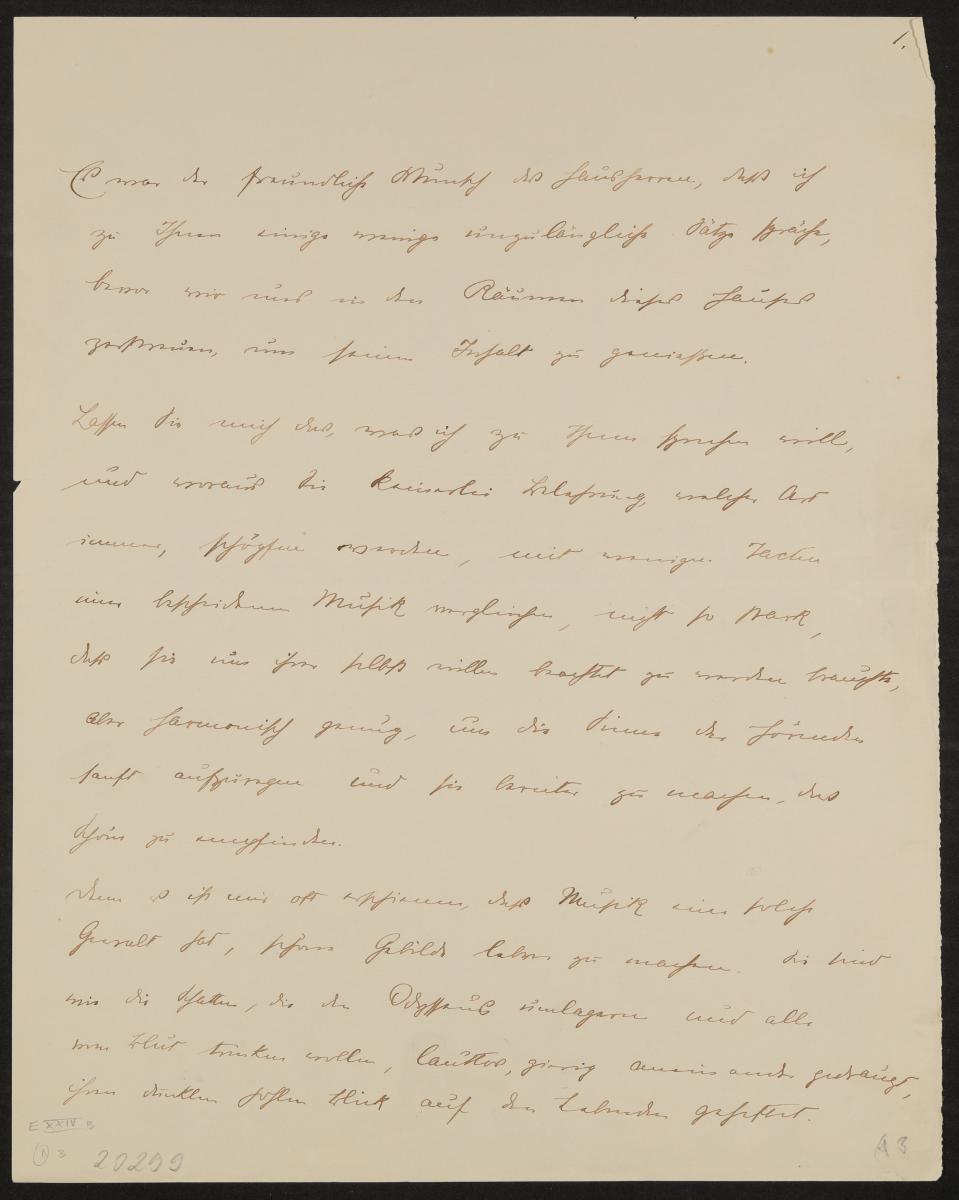 1.
Es war der freundliche Wunsch des Hausherren, daß ich
zu Ihnen einige wenige unzulängliche Sätze spräche,
bevor wir uns in den Räumen dieses Hauses
zerstreuen, um seinen Inhalt zu genießen.
Lassen Sie mich das, was ich zu Ihnen sprechen will,
und woraus Sie keinerlei Belehrung, welcher Art
immer, schöpfen werden, mit wenigen Tacten
einer bescheidenen Musik vergleichen, nicht so stark,
daß sie um ihrer selbst willen beachtet zu werden brauchte,
aber harmonisch genug, um die Sinne der Hörenden
sanft aufzuregen und sie bereiter zu machen, das
Schöne zu empfinden.
Denn es ist mir oft erschienen, daß Musik eine solche
Gewalt hat, schöne Gebilde leben zu machen. Sie sind
wie die Schatten, die den Odysseus umlagern und alle
vom Blut trinken wollen, lautlos, gierig aneinander gedrängt,
ihren dunklen hohlen Blick auf den Lebenden geheftet.
E XXIV B
1 3
20299
A 3